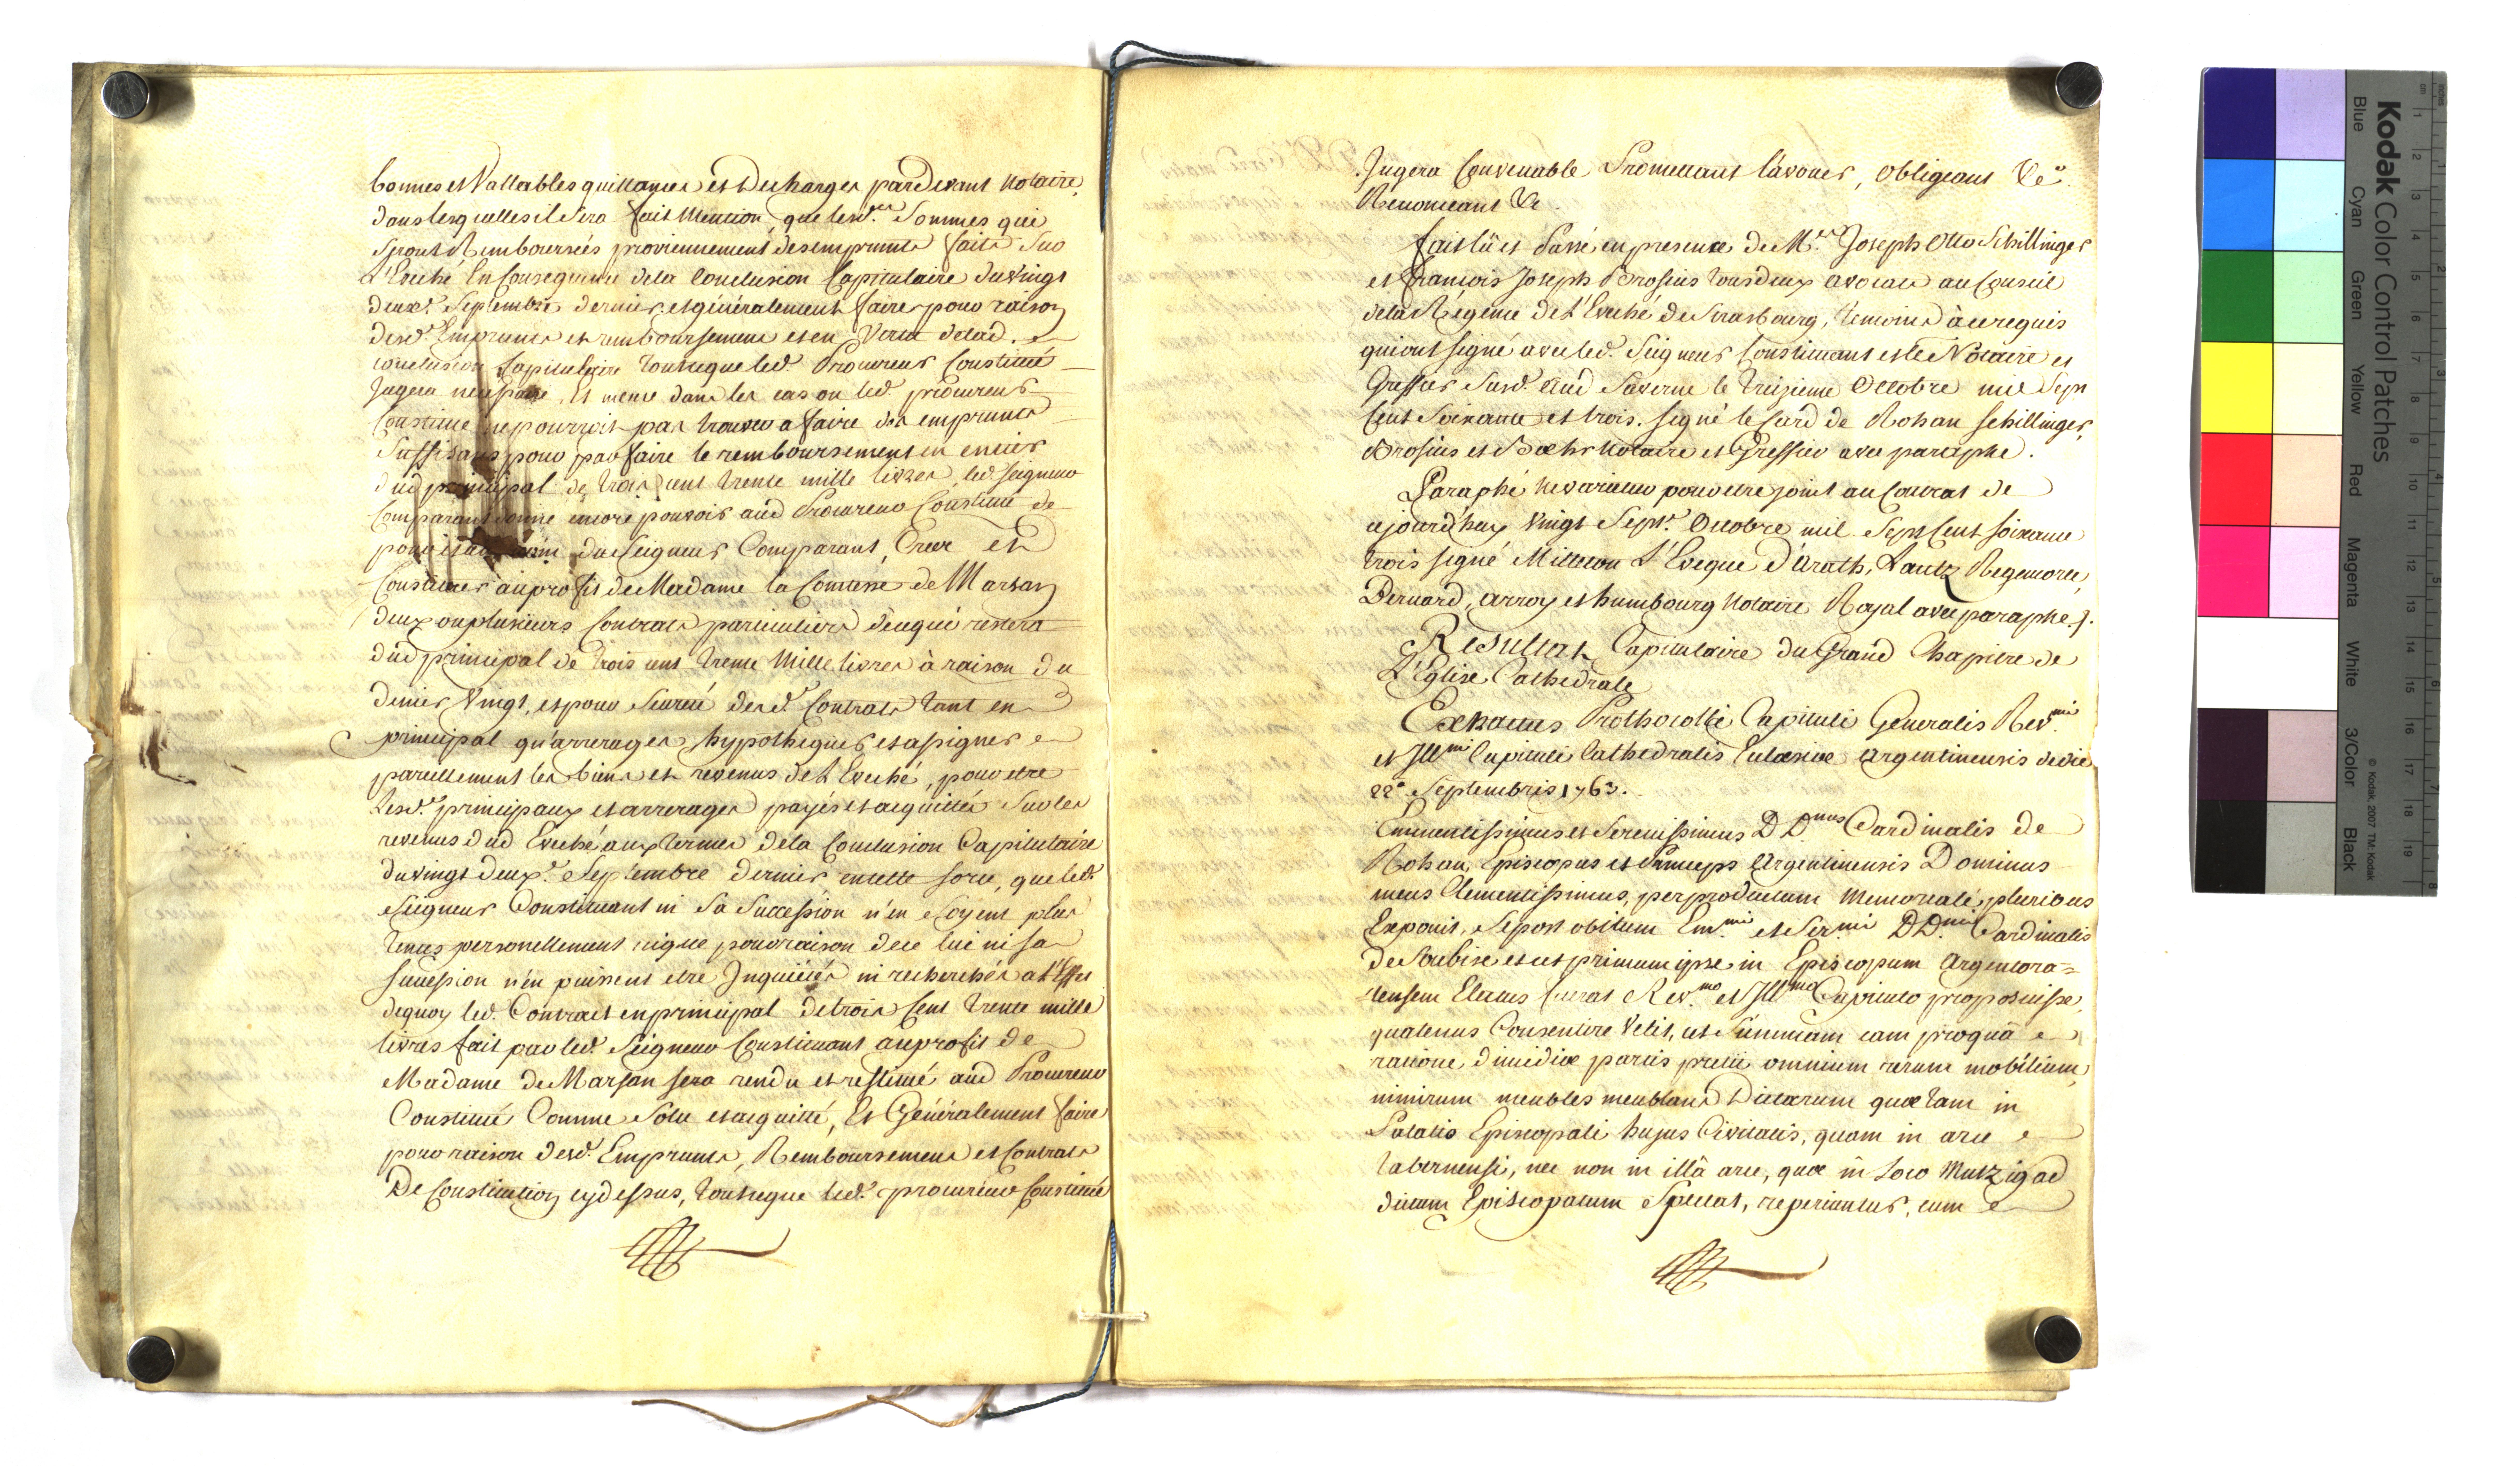 bonnes et Vallables quittances et decharges pardevant Notaire,
dans lesquelles il Sera fait Mention, que lesd.es Sommes qui
Seront Remboursées proviennement des emprunts faits Sur
L'Eveché En Consequence dela Conclusion Capitulaire du vingt
deux.e Septembre dernier, et généralement faire pour raison
desd.s Emprunts et remboursement et en Vertu delad.
conclusion Capitulaire tout ce que led. Procureur Constitué
Jugera necessaire, Et meme dans les cas ou led. procureur
Constitué ne pourroit pas trouver a faire des emprunts
Suffisans pour parfaire le remboursement en entier
dud principal de trois cent trente mille livres, led. seigneur
Comparant donne encore pouvoir aud Procureur Constitué de
pour et au nom du Seigneur Comparant, Creer et
Constituer au profit de Madame la Comtesse de Marsan
deux ou plusieurs Contrats particuliers de ce qui restera
dud principal de trois cent trente Mille livres à raison du
denier Vingt, et pour Seureté desd.s Contrats tant en
principal qu'arrerages, hypothequer et assigner
pareillement les biens et revenus de L'Eveché, pour etre
Lesd.s principaux et arrerages payés et acquittés Sur les
revenus dud Eveché aux termes dela Conclusion Capitulaire
du vingt deux.e Septembre dernier, en telle sorte, que led.
Seigneur Constituant ni Sa Succession n'en Soyent plus
tenus personellement ni que pour raison de ce lui ni sa
succession n'en puissent etre Inquiétés ni recherchés a L'Effet
dequoy led. Contract en principal de trois Cent trente mille
livres fait par led. Seigneur Constituant au profit de
Madame de Marsan sera rendu et restitué aud Procureur
Constitué Comme Solu et acquitté, Et Généralement faire
pour raison desd. Emprunts, Remboursemens et Contrats
De Constitution cy dessus, tout ce que led. procureur Constitué
Jugera Convenable Promettant l'avouer, Obligeant &c.
Renonceant &c.
fait lû et Passé en presence de M.rs Joseph Otto Schillinger
et François Joseph Brosius tous deux avocats au Conseil
dela Régence de L'Eveché de Strasbourg, temoins à ce requis
qui ont signé avec led. Seigneur Constituant et le Notaire et
Greffier Susd. Aud Saverne le treizieme Octobre mil Sept
Cent Soixante et trois. signé le Card de Rohan Schillinger,
Brosius et Bœhr Notaire et Greffier avec paraphe.
Paraphé Nevarietur pour etre joint au Contrat de
cejourd'huy Vingt Sept.e Octobre mil Sept Cent soixante
trois signé L'Eveque D'Arath, Lantz Regemorte,
Bernard, Arroy et humbourg Notaire Royal avec paraphe.
Resultat Capitulaire du Grand Chapitre de
L'Eglise Cathedrale
Extractus Prothocolli Capituli Generalis Rev.mi
et Ill.mi Capituli Cathedralis Ecclesiæ Argentinensis de die
22.a Septembris 1763.
Eminentissimus et Serenissimus D D.nus Cardinalis de
Rohan, Episcopus et Princeps Argentinensis Dominus
meus Clementissimus, per productum Memoriale pluribus
Exposuit, Se post obitum Em.mi et Ser.mi D D.ni Cardinalis
de Soubise et ut primum ipse in Episcopum Argentora=
tensem Electus fuerat Rev.mo et Ill.mo Capitulo proposuisse,
quatenus Consentire Velit, ut Summam eam pro quâ
ratione dimidiæ partis pretii omnium rerum mobilium,
nimirum meubles meublans Dictarum quæ tam in
Palatio Episcopali hujus Civitatis, quam in arce
tabernensi, nec non in illâ arce, quæ in Loco Mutzig ad
dictum Episcopatum Spectat, reperiuntur, cum